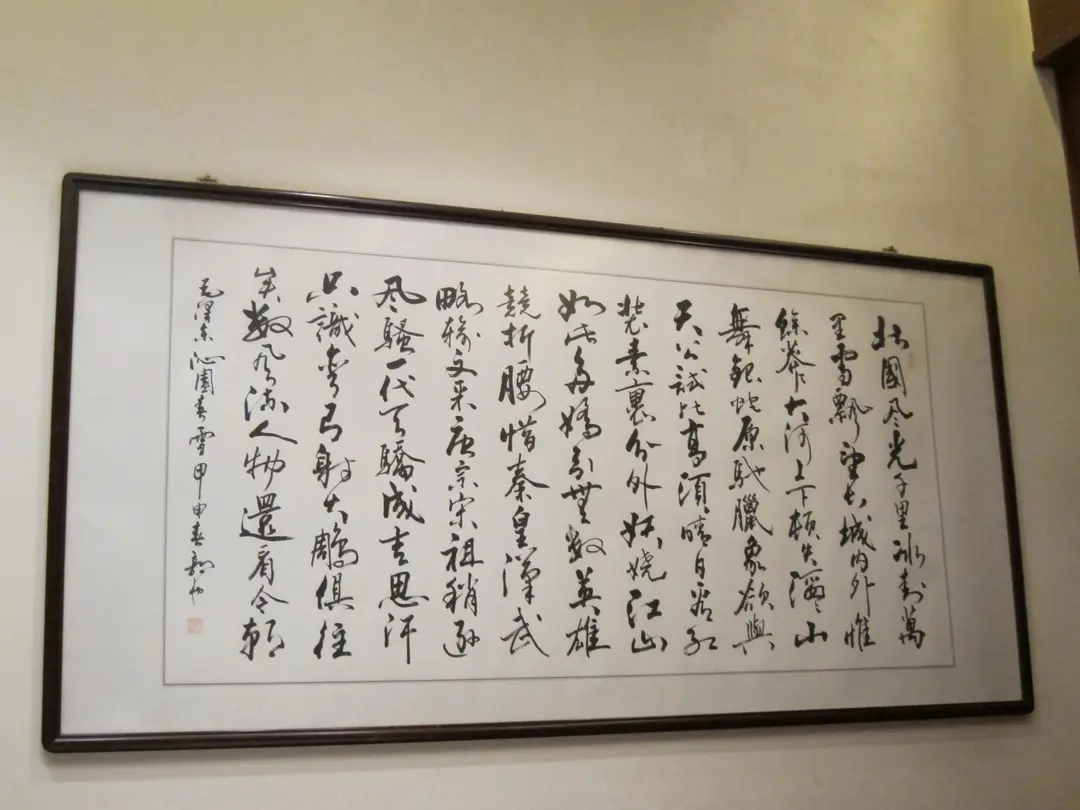 北國风光千里冰封萬
里雪飘望长城内外惟
餘莽莽大河上下顿失滔滔山
舞銀蛇原馳臘象欲與
天公試比高須晴日看红
装素裹分外妖娆江山
如此多嬌引無數英雄
競折腰惜秦皇漢武
略输文采唐宗宋祖稍逊
风騷一代天驕成吉思汗
只識弯弓射大鵰俱往
矣數风流人物還看今朝
毛澤东沁園春雪甲申春